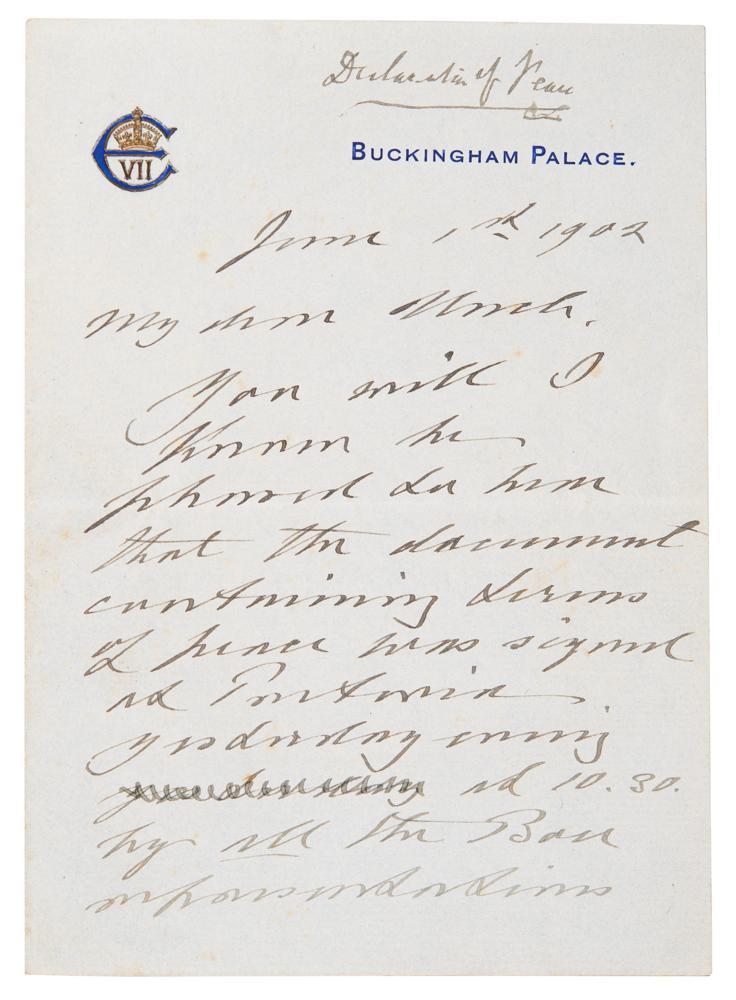 Declaration of Peace
VII
BUCKINGHAM PALACE.
June 1st 1902
My dear Uncle.
You will I
know be
pleased to hear
that the document
containing terms
of peace was signed
at Pretoria
yesterday evening
at 10.30.
by all the Boer
representations